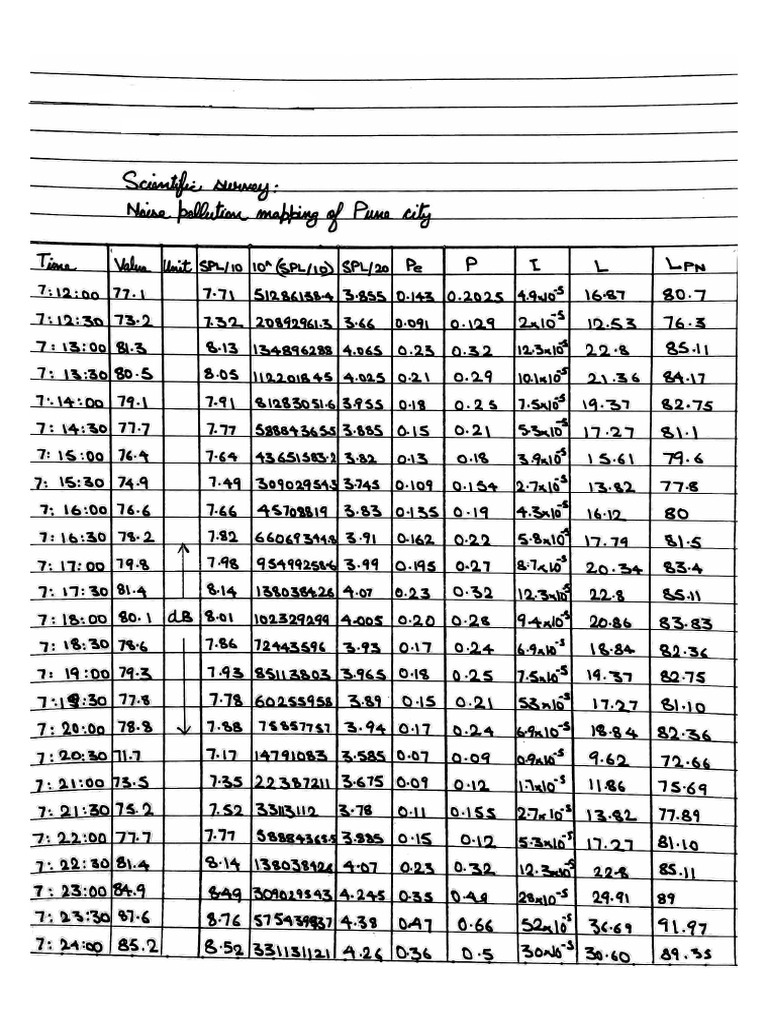 Scientific survey:
Noise pollution mapping of Pune city
Time Value Unit SPL/10 10^(SPL/10) SPL/20 Pe P I L LPN
7:12:00 77.1 7.71 51286138.4 3.855 0.143 0.2025 4.9x10⁻⁵ 16.87 80.7
7:12:30 73.2 7.32 20892961.3 3.66 0.091 0.129 2x10⁻⁵ 12.53 76.3
7:13:00 81.3 8.13 134896288 4.065 0.23 0.32 12.3x10⁻⁵ 22.8 85.11
7:13:30 80.5 8.05 112201845 4.025 0.21 0.29 10.1x10⁻⁵ 21.36 84.17
7:14:00 79.1 7.91 81283051.6 3.955 0.18 0.25 7.5x10⁻⁵ 19.37 82.75
7:14:30 77.7 7.77 588843655 3.885 0.15 0.21 5.3x10⁻⁵ 17.27 81.1
7:15:00 76.4 7.64 43651583.2 3.82 0.13 0.18 3.9x10⁻⁵ 15.61 79.6
7:15:30 74.9 7.49 309029545 3.745 0.109 0.154 2.7x10⁻⁵ 13.82 77.8
7:16:00 76.6 7.66 45708819 3.83 0.135 0.19 4.3x10⁻⁵ 16.12 80
7:16:30 78.2 7.82 66069344.8 3.91 0.162 0.22 5.8x10⁻⁵ 17.79 81.5
7:17:00 79.8 7.98 954992586 3.99 0.195 0.27 8.7x10⁻⁵ 20.34 83.4
7:17:30 81.4 8.14 138038426 4.07 0.23 0.32 12.3x10⁻⁵ 22.8 85.11
7:18:00 80.1 dB 8.01 102329299 4.005 0.20 0.28 9.4x10⁻⁵ 20.86 83.83
7:18:30 78.6 7.86 72443596 3.93 0.17 0.24 6.9x10⁻⁵ 18.84 82.36
7:19:00 79.3 7.93 85113803 3.965 0.18 0.25 7.5x10⁻⁵ 19.37 82.75
7:19:30 77.8 7.78 60255958 3.89 0.15 0.21 53x10⁻⁵ 17.27 81.10
7:20:00 78.8 7.88 75857757 3.94 0.17 0.24 6.9x10⁻⁵ 18.84 82.36
7:20:30 71.7 7.17 14791083 3.585 0.07 0.09 0.9x10⁻⁵ 9.62 72.66
7:21:00 73.5 7.35 22387211 3.675 0.09 0.12 1.7x10⁻⁵ 11.86 75.69
7:21:30 75.2 7.52 33113112 3.78 0.11 0.155 2.7x10⁻⁵ 13.82 77.89
7:22:00 77.7 7.77 588843655 3.885 0.15 0.12 5.3x10⁻⁵ 17.27 81.10
7:22:30 81.4 8.14 138038426 4.07 0.23 0.32 12.3x10⁻⁵ 22.8 85.11
7:23:00 84.9 8.49 309029543 4.245 0.35 0.49 28x10⁻⁵ 29.91 89
7:23:30 87.6 8.76 575439937 4.38 0.47 0.66 52x10⁻⁵ 36.69 91.97
7:24:00 85.2 8.52 331131121 4.26 0.36 0.5 30x10⁻⁵ 30.60 89.35